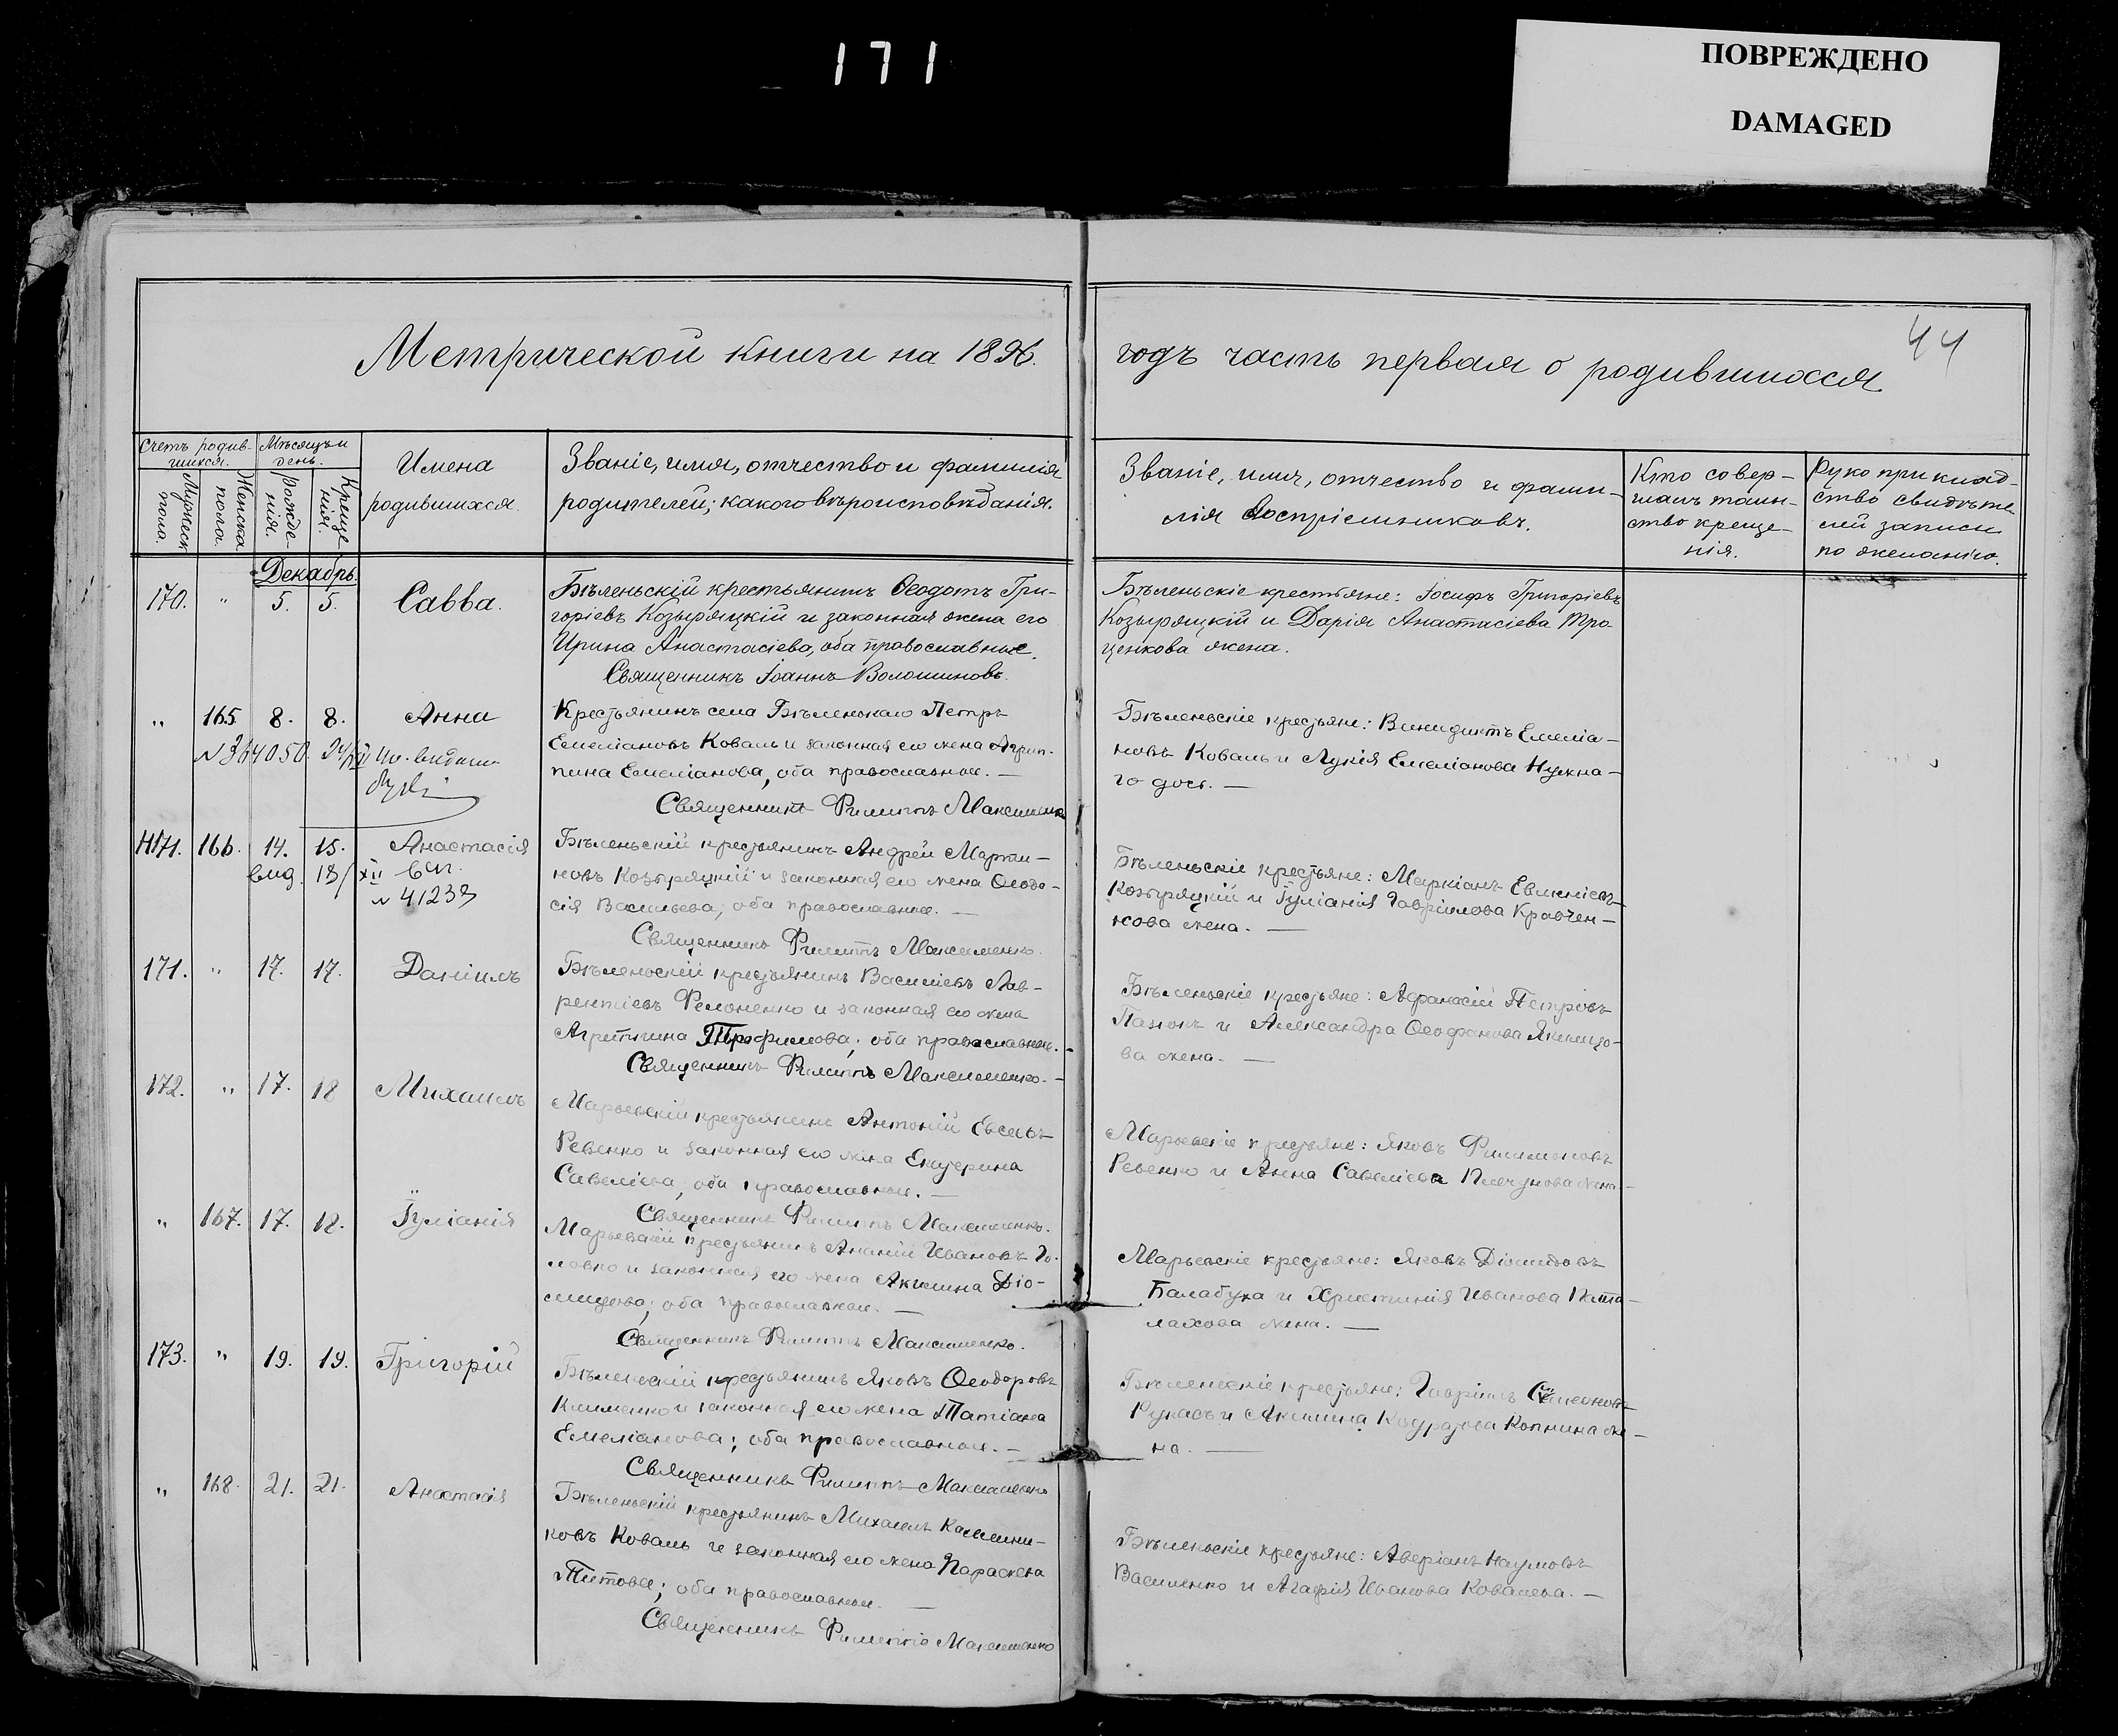 171
ПОВРЕЖДЕНО
DAMAGED
44
Метрической книги на 1896.
годъ часть первая о родившихся
Счетъ родив-
шихся.
Мѣсяцъ и
день.
Мужеск
пола.
Женска
пола.
Рожде-
нія.
Креще
нія.
Имена
родившихся.
Званіе, имя, отчество и фамилія
родителей; какого вѣроисповѣданія.
Званіе, имя, отчество и фами-
лія воспріемниковъ.
Кто совер-
шалъ таин-
ство креще-
нія.
Рукоприклад-
ство свидѣте
лей записи
по желанію.
Декабрь.
170. " 5. 5. Савва.
Бѣленьскій крестьянинъ Ѳеодотъ Гри-
горіевъ Козыряцкій и законная жена его
Ирина Анастасіева, оба православные.
Священникъ Іоаннъ Волошиновъ.
Бѣленьскіе крестьяне: Іосифъ Григоріевъ
Козыряцкій и Дарія Анастасіева Тро-
ценкова жена.
" 165 8. 8. Анна
24/XII
Крестьянинъ села Бѣленькаго Петръ
Емеліановъ Коваль и законная его жена Агрип-
пина Емеліанова, оба православные. —
Священникъ Филиппъ Максименко
Бѣленьскіе крестьяне: Венидиктъ Емеліа-
новъ Коваль и Лукія Емеліанова Нужна-
го дочь. —
Н171. 166. 14. 15. Анастасія
вид. 18/XII
№ 41239
Бѣленьскій крестьянинъ Андрей Марти-
новъ Козыряцкій и законная его жена Ѳеодо-
сія Васильева; оба православные. —
Священникъ Филиппъ Максименко.
Бѣленьскіе крестьяне: Маркіанъ Евменіевъ
Козыряцкій и Іуліанія Гавріилова Кравчен-
кова жена. —
171. " 17. 17. Даніилъ
Бѣленьскій крестьянинъ Василіевъ Лав-
рентіевъ Филоненко и законная его жена
Агриппина Трофимова; оба православные. -
Священникъ Филиппъ Максименко. -
Бѣленьскіе крестьяне: Аѳанасій Петровъ
и Александра Ѳеофанова
ва жена. —
172. " 17. 18 Михаилъ
Марьевскій крестьянинъ Антоній Евсеевъ
Ревенко и законная его жена Екатерина
Савеліева, оба православные. —
Священникъ Филиппъ Максименко.
Марьевскіе крестьяне: Яковъ Филимоновъ
Ревенко и Анна Савеліева Плечунова жена. -
" 167. 17. 18. Іуліанія
Марьевскій крестьянинъ Ананій Ивановъ Го-
ловко и законная его жена Акилина Діо-
мидова; оба православные. —
Священникъ Филиппъ Максименко.
Марьевскіе крестьяне: Яковъ Діомидовъ
Балабуха и Христинія Иванова
лахова жена. —
173. " 19. 19. Григорій
Бѣленьскій крестьянинъ Яковъ Ѳеодоровъ
Клименко и законная его жена Татіана
Емеліанова; оба православные. —
Священникъ Филиппъ Максименко
Бѣленьскіе крестьяне: Гавріилъ Симеоновъ
и Акилина Кодратова Копнина же-
на. —
" 168. 21. 21. Анастасія
Бѣленьскій крестьянинъ Михаилъ Каллини-
ковъ Коваль и законная его жена Параскева
Титова; оба православные. —
Священникъ Филиппъ Максименко
Бѣленьскіе крестьяне: Аверіанъ Наумовъ
Василенко и Агафія Иванова Ковалева. —